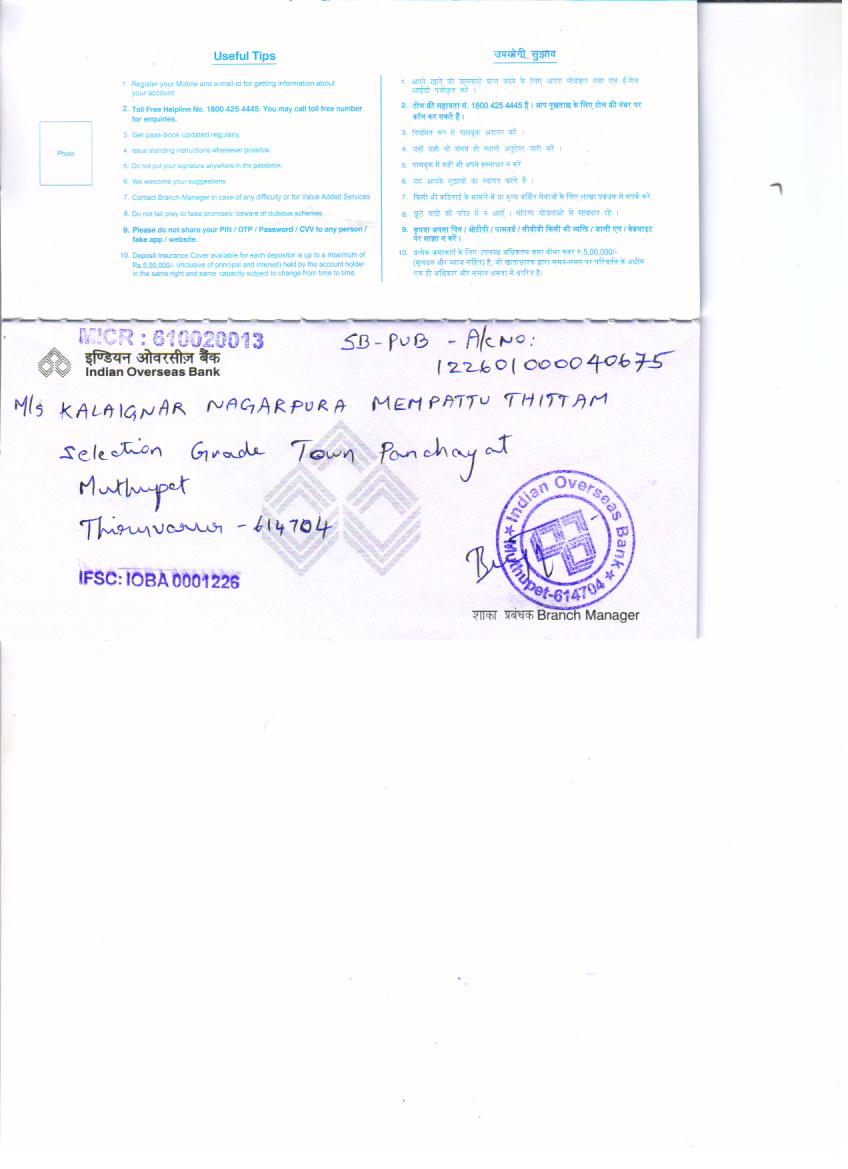 Useful Tips
1. Register your Mobile and e-mail-id for getting information about
your account.
2. Toll Free Helpline No. 1800 425 4445. You may call toll free number
for enquiries.
3. Get pass-book updated regularly.
4. Issue standing instructions whereever possible.
5. Do not put your signature anywhere in the passbook.
6. We welcome your suggestions.
7. Contact Branch Manager in case of any difficulty or for Value Added Services
8. Do not fall pray to false promises: beware of dubious schemes
9. Please do not share your PIN / OTP / Password / CVV to any person /
fake app / website.
10. Deposit Insurance Cover available for each depositor is up to a maximum of
Rs.5,00,000/- (inclusive of principal and interest) held by the account holder
in the same right and same capacity subject to change from time to time.
Photo
उपयोगी सुझाव
1. अपने खाते की जानकारी प्राप्त करने के लिए अपना मोबाइल नंबर एवं ई-मेल
आईडी पंजीकृत करें ।
2. टोल फ्री सहायता नं. 1800 425 4445 है । आप पूछताछ के लिए टोल फ्री नंबर पर
कॉल कर सकते हैं ।
3. नियमित रूप से पासबुक अद्यतन करें ।
4. जहाँ कहीं भी संभव हो स्थायी अनुदेश जारी करें ।
5. पासबुक में कहीं भी अपने हस्ताक्षर न करें
6. हम आपके सुझावों का स्वागत करते है ।
7. किसी भी कठिनाई के मामले में या मूल्य वर्धित सेवाओं के लिए शाखा प्रबंधक से संपर्क करें
8. झूठे वादों की चपेट में न आएँ । संदिग्ध योजनाओं से सावधान रहें ।
9. कृपया अपना पिन / ओटीपी / पासवर्ड / सीवीवी किसी भी व्यक्ति / जाली एप / वेबसाइट
पर साझा न करें ।
10. प्रत्येक जमाकर्ता के लिए उपलब्ध अधिकतम जमा बीमा कवर रु 5,00,000/-
(मूलधन और ब्याज सहित) है, जो खाताधारक द्वारा समय-समय पर परिवर्तन के अधीन
एक ही अधिकार और समान क्षमता में धारित है।
MICR : 610020013
SB-PUB - A/c NO:
122601000040675
इण्डियन ओवरसीज़ बैंक
Indian Overseas Bank
M/s KALAIGNAR NAGARPURA MEMPATTU THITTAM
Selection Grade Town Panchayat
Muthupet
Thiruvarur - 614704
IFSC: IOBA 0001226
Indian Overseas Bank
Muthupet-614704
शाखा प्रबंधक Branch Manager